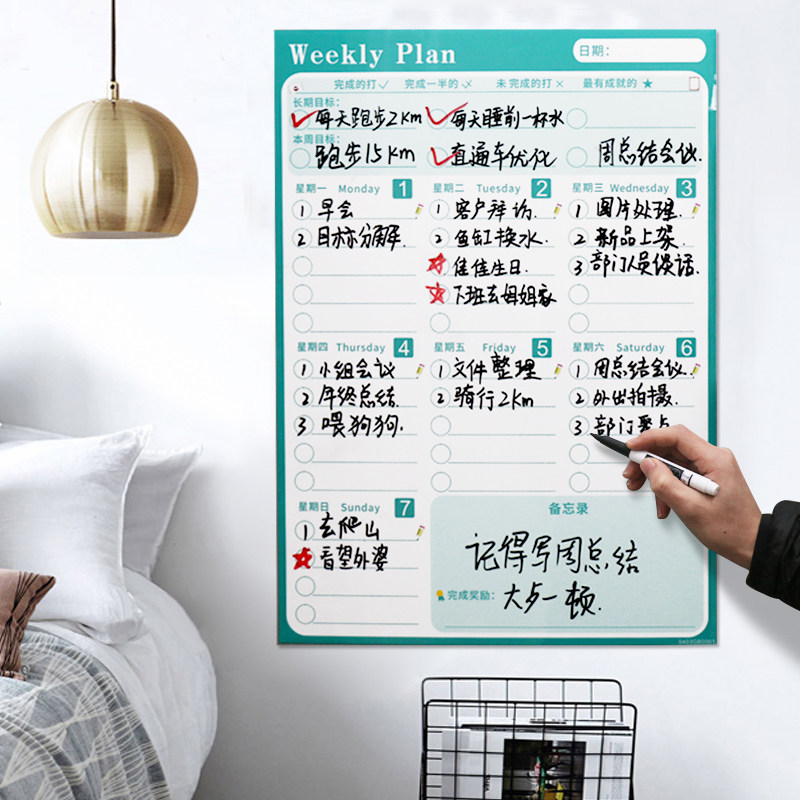 Weekly Plan
日期：
完成的打✓ 完成一半的✓ 未完成的打× 最有成就的★
长期目标：
每天跑步2Km 每天睡前一杯水
本周目标：
跑步15Km 直通车优化 周总结会议.
星期一 Monday 1
1 早会
2 目标分解.
星期二 Tuesday 2
1 客户拜访.
2 鱼缸换水.
佳佳生日.
下班去姐姐家
星期三 Wednesday 3
1 图片处理.
2 新品上架.
3 部门人员谈话.
星期四 Thursday 4
1 小组会议
2 年终总结.
3 喂狗狗.
星期五 Friday 5
1 文件整理
2 骑行2Km
星期六 Saturday 6
1 周总结会议.
2 外出拍摄.
3 部门聚点
星期日 Sunday 7
1 去爬山
看望外婆
备忘录
记得写周总结
完成奖励：大吃一顿.